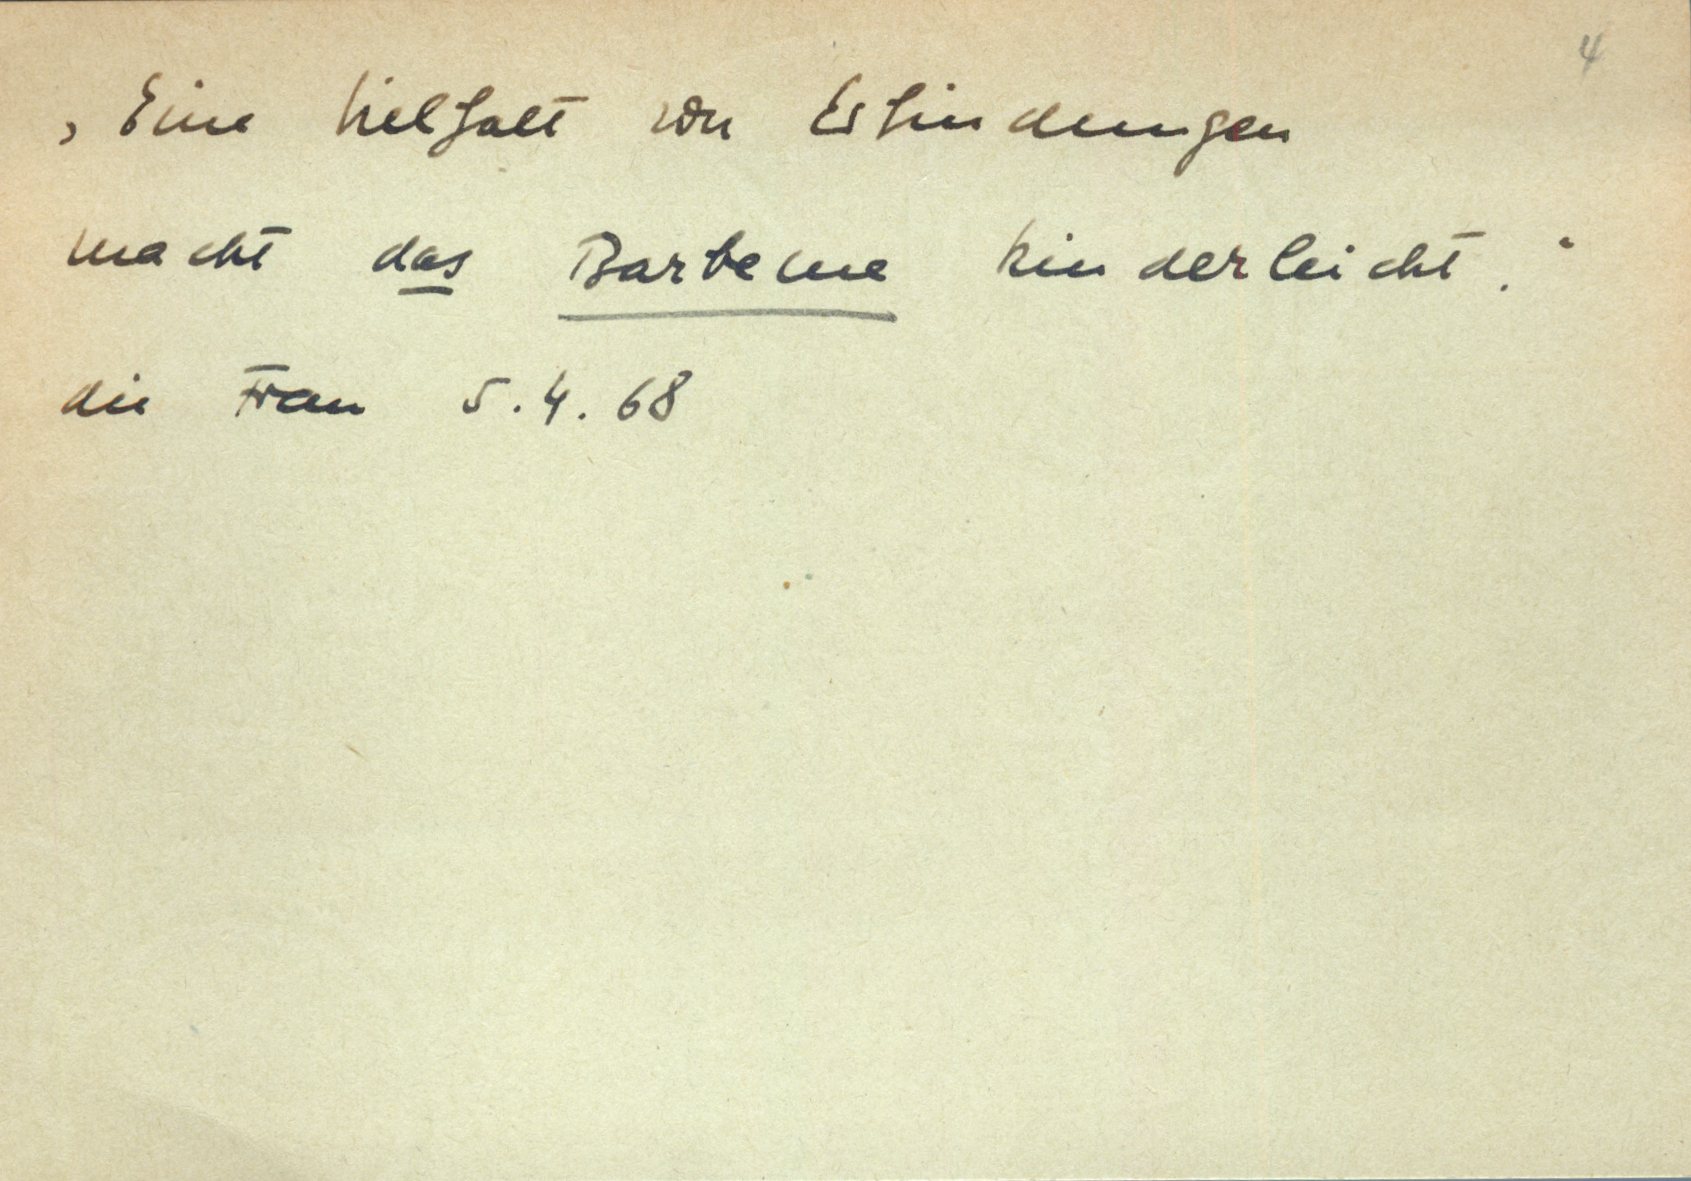 4
„Eine Vielfalt von Erfindungen
macht das Barbecue kinderleicht.“
die Frau 5.4.68